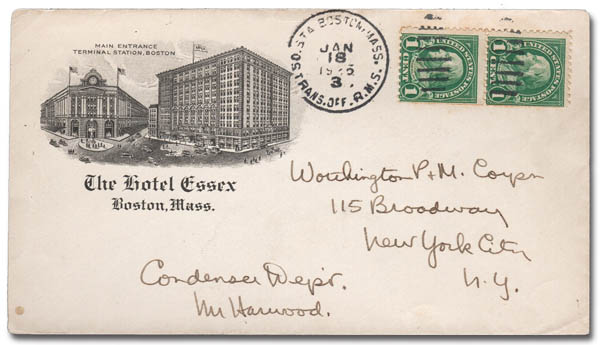 MAIN ENTRANCE
TERMINAL STATION, BOSTON
The Hotel Essex
Boston, Mass.
SO. STA. BOSTON, MASS.
JAN
18
3
TRANS. OFF. R.M.S.
UNITED STATES POSTAGE
1 CENT 1
UNITED STATES POSTAGE
1 CENT 1
Worthington P+M. Corpn
115 Broadway
New York City
N.Y.
Condenser Dep't.
Mr Harwood.